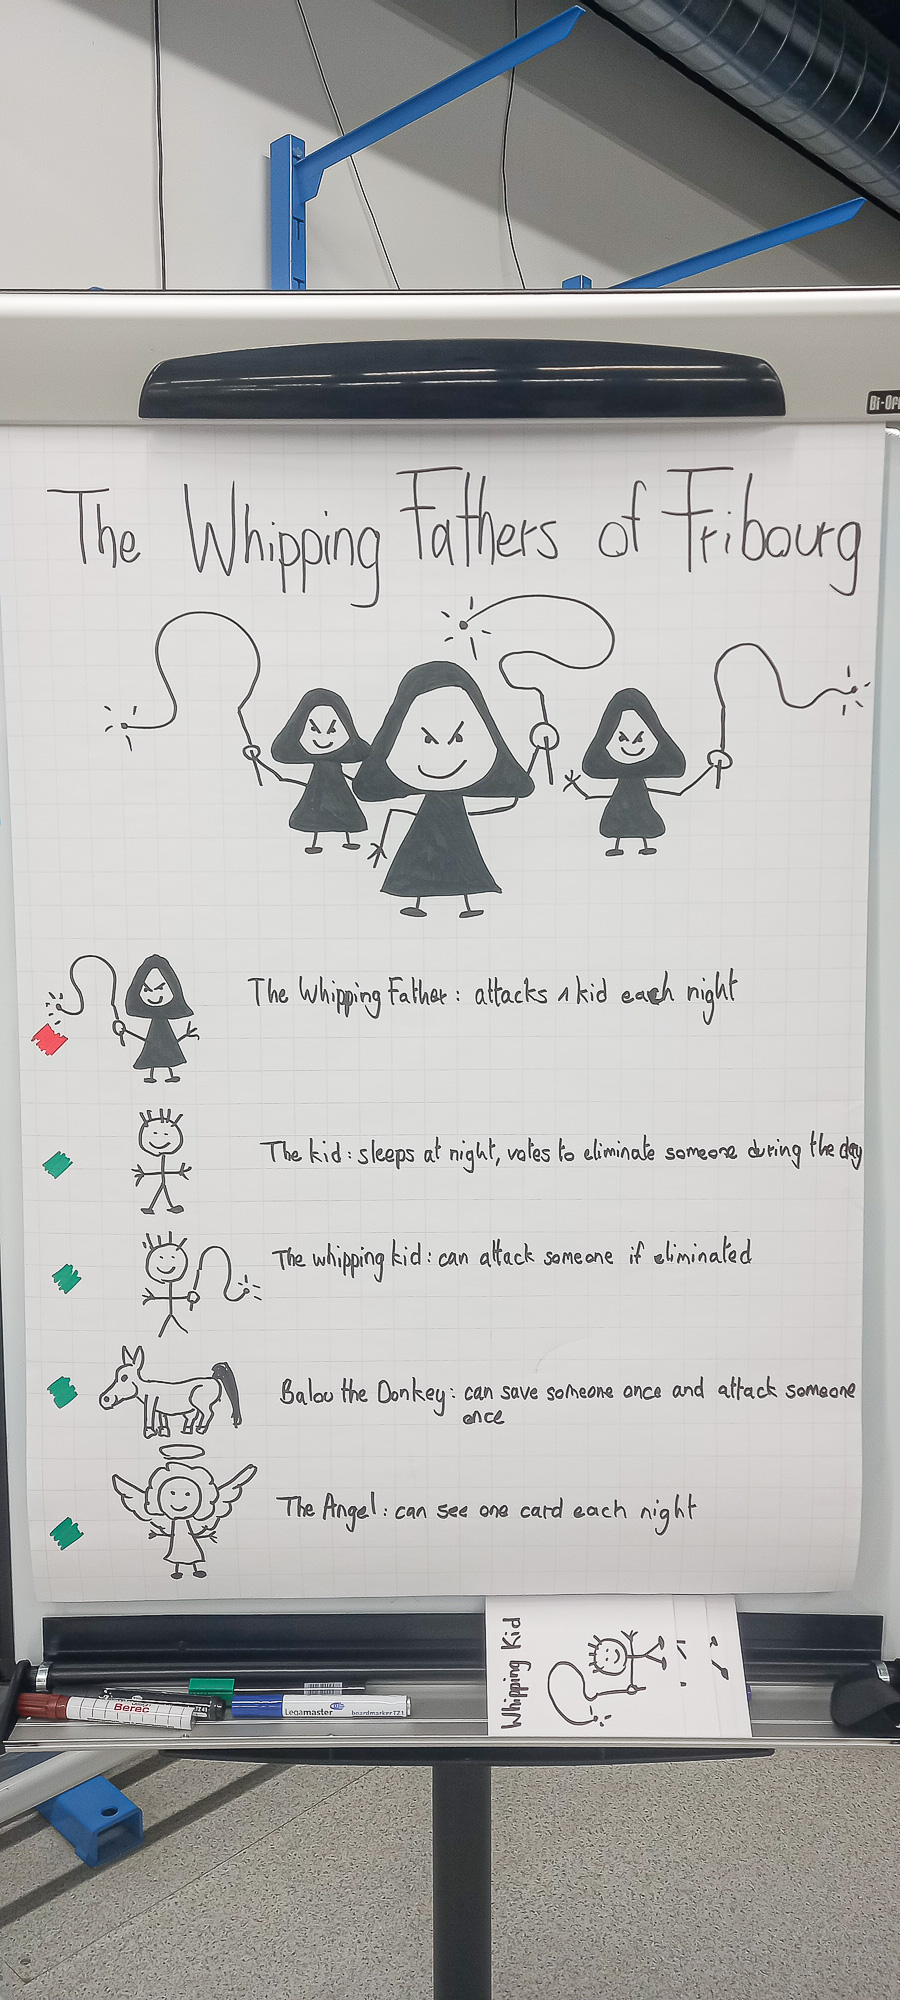 Bi-Of
The Whipping Fathers of Fribourg
The Whipping Father: attacks 1 kid each night
The kid: sleeps at night, votes to eliminate someone during the day
The whipping kid: can attack someone if eliminated
Balou the Donkey: can save someone once and attack someone
once
The Angel: can see one card each night
Whipping Kid
Berec
Legamaster
boardmarker TZ1